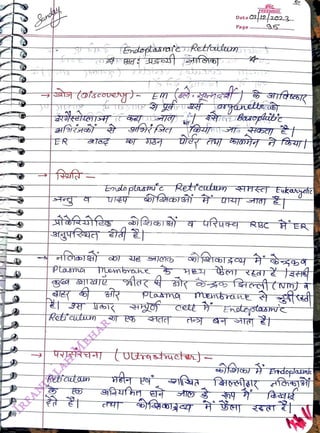 Sunday
Date 01/12/2023
Page 35
Endoplasmic Reticulum
अन्तः प्रद्रव्यी जालिका
→ खोज (discovery) :- EM (इले. सूक्ष्मदर्शी) के आविष्कार
से पूर्व इसे organelle को
अर्गेस्टोप्लाज्म कहा जाता था। इसे Basophilic
अभिरंजकों से अभिरंजित किया जा सकता है।
ER शब्द का गठन पोर्टर तथा कालमेन ने किया।
→ स्थिति -
Endoplasmic Reticulum समस्त Eukaryotic
जन्तु व पादप कोशिकाओं में पाया जाता है।
प्रोकैरियोटिक कोशिकाओं व परिपक्व RBC में ER
अनुपस्थित होती है।
→ नलिकाओं का यह जालक कोशिकाद्रव्य में केन्द्रक व
Plasma Membrane के मध्य फैला रहता है। इसकी
कुछ शाखाएं भीतर की ओर केन्द्रक झिल्ली (NM) व
बाहर की ओर Plasma Membrane से जुड़ी रहती
है। इस प्रकार सम्पूर्ण cell में Endoplasmic
Reticulum का एक सतत तन्त्र बन जाता है।
→ परासंरचना (Ultrastructure) -
कोशिका में Endoplasmic
Reticulum महीन एवं शाखित झिल्लीदार नलिकाओं
के एक अनियमित घने जाल के रूप में दिखाई
देते है। तथा कोशिकाद्रव्य में फैला रहता है।